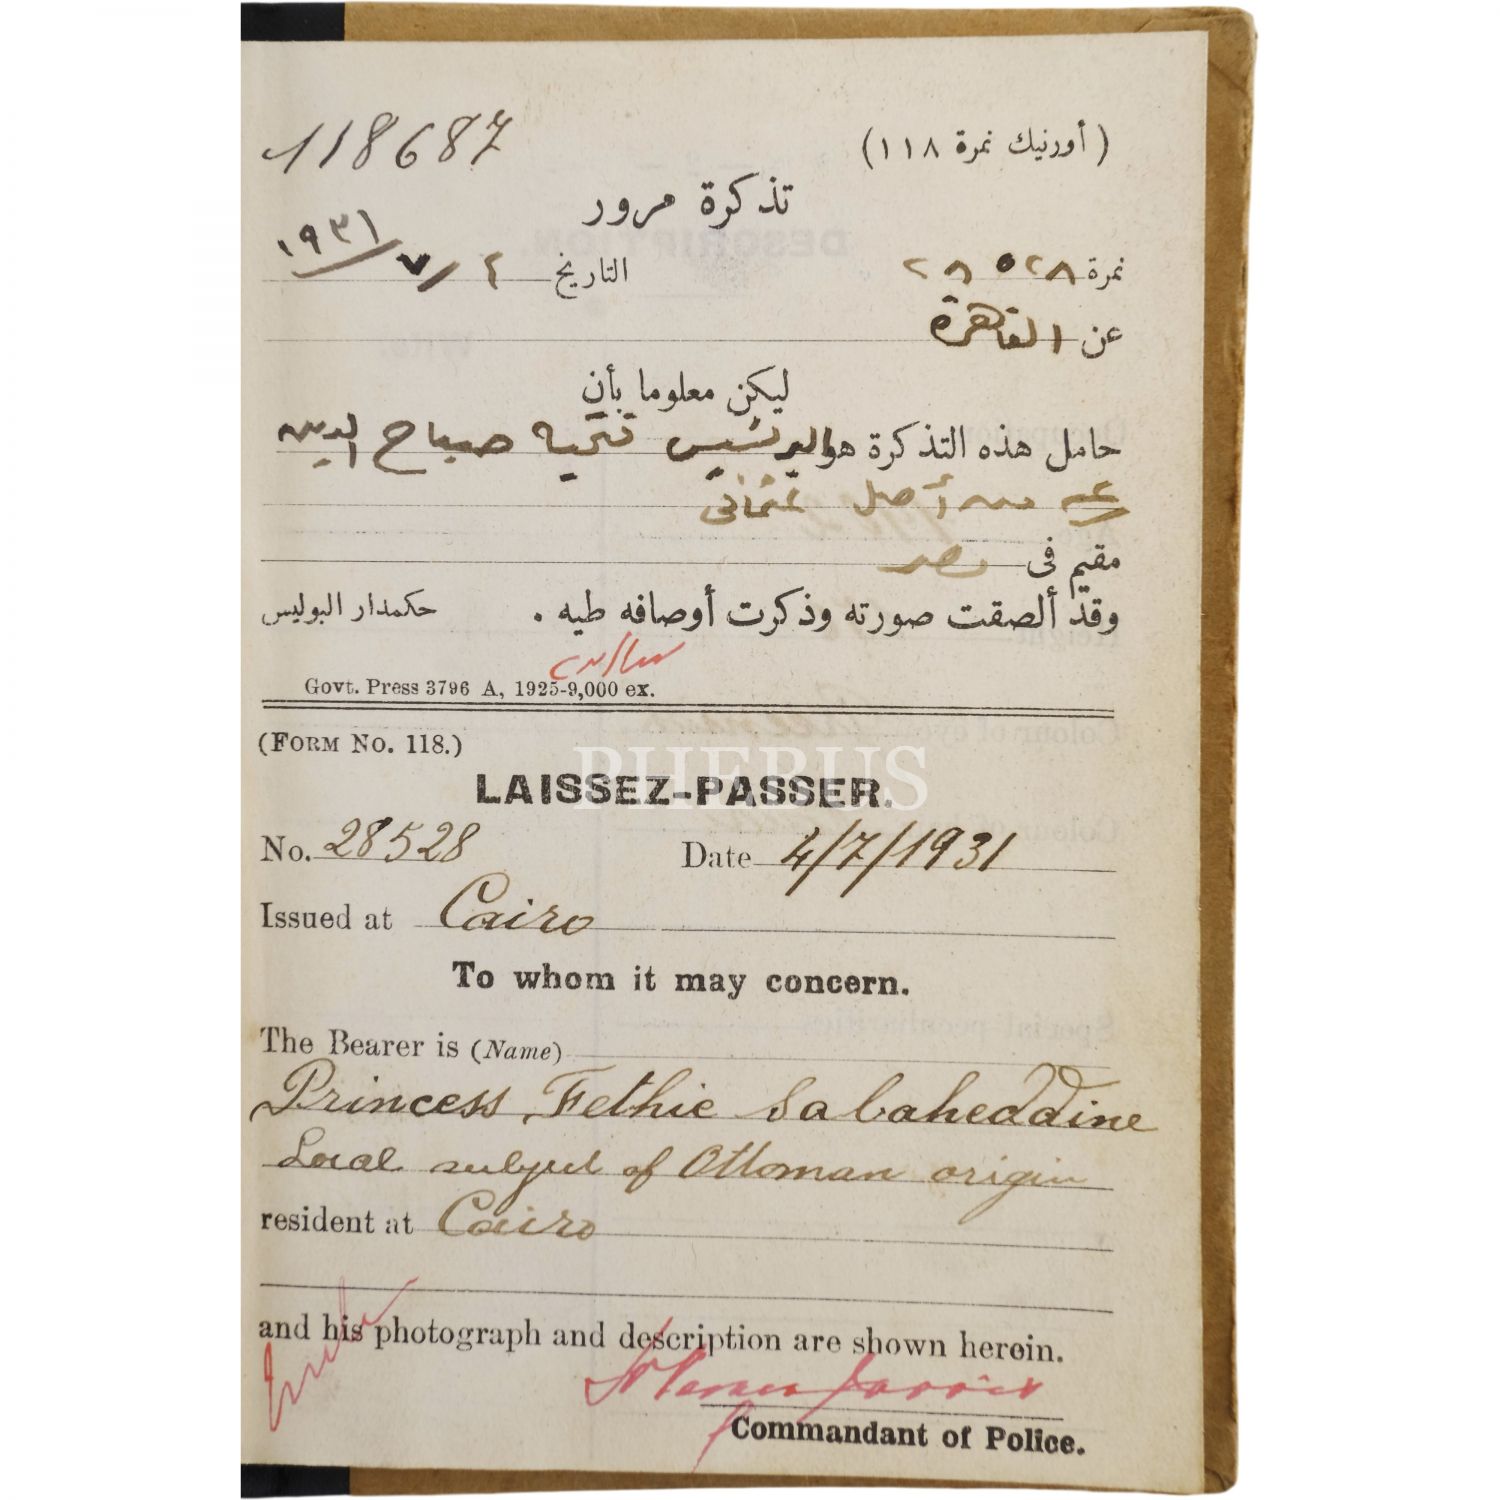 118687
(أورنيك نمرة ١١٨)
تذكرة مرور
نمرة ٢٨٥٢٨ التاريخ ٤/٧/١٩٣١
عن القاهرة
ليكن معلوما بأن
حامل هذه التذكرة هو البرنسيس فتحيه صباح الدين
من أصل عثمانى
مقيم فى مصر
وقد ألصقت صورته وذكرت أوصافه طيه .
حكمدار البوليس
Govt. Press 3796 A, 1925-9,000 ex.
(FORM No. 118.)
LAISSEZ-PASSER.
PHEBUS
No. 28528 Date 4/7/1931
Issued at Cairo
To whom it may concern.
The Bearer is (Name)
Princess Fethie Sabaheddine
Local subject of Ottoman origin
resident at Cairo
and his photograph and description are shown herein.
Commandant of Police.